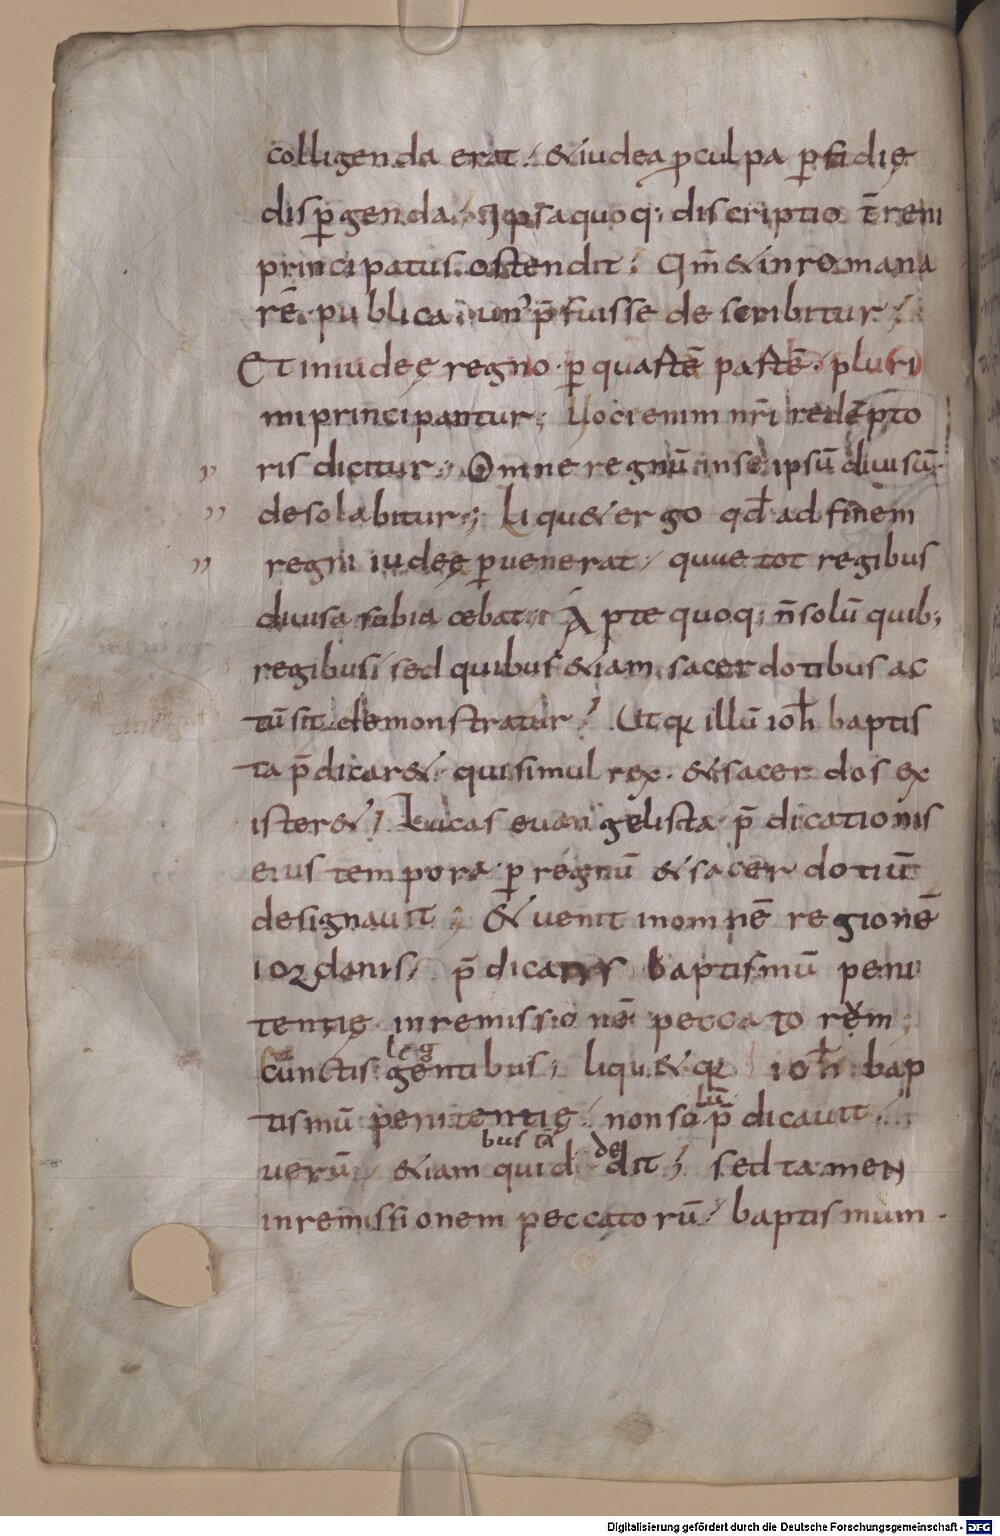 colligenda erat. & iudea p culpa ꝑfidię
disꝑgenda. Ipsa quoq; discriptio t̄reni
principatus ostendit. Qm̄ & in romana
rē publica. unꝰ p̄fuisse describitur;
Et in iudeę regno. ꝑ quartē partē. pluri
mi principantur; Uoci enim nr̄i redēpto
ris dicitur; Omne regnū in se ipsū diuisū
desolabitur; Liqu& ergo qđ ad finem
regni iudeę ꝑuenerat. quae tot regibus
diuisa subiacebat; Apte quoq; n̄ solū quib;
regibus; sed quibus &iam sacerdotibus ac
tū sit demonstratur; Ut qr illū ioh̄ baptis
ta p̄dicar&. qui simul rex. & sacerdos ex
ister&; Lucas euangelista p̄dicationis
eius tempora ꝑ regnū & sacerdotiū
designauit; & uenit in omnē regionē
iordanis. p̄dicans baptismū peni
tentię in remissionē peccatorem;
leg
Cunctis gentibus; liqu& qr ioh̄ bap
lū
tismū penitentię non so p̄dicauit.
bus tā de
uerū &iam qui d dit; sed tamen
in remissionem peccatorū baptismum.
Digitalisierung gefördert durch die Deutsche Forschungsgemeinschaft - DFG